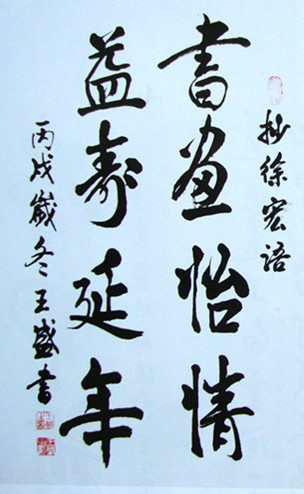 抄徐宏语
書畫怡情
益寿延年
丙戌岁冬王盛書